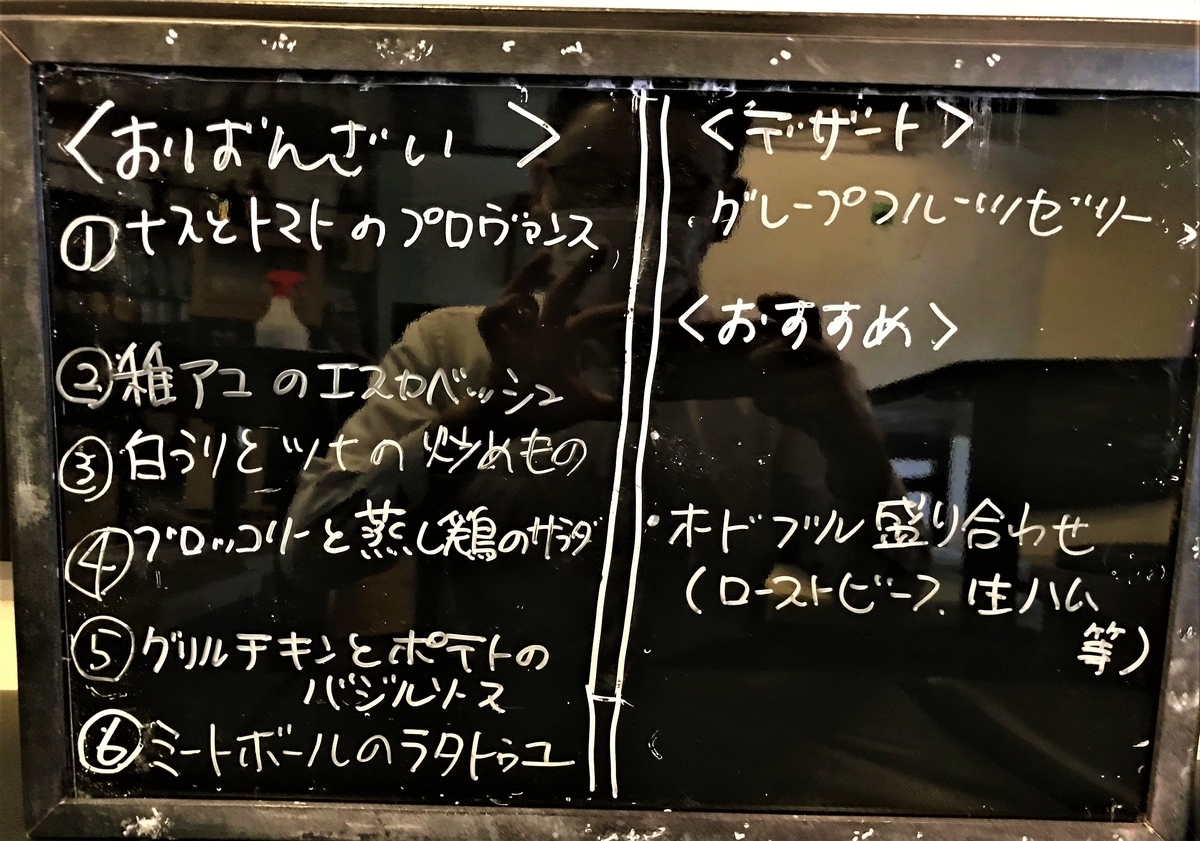 <おばんざい>
①ナストマトのプロヴァンス
②稚アユのエスカベッシュ
③白うりとツナの炒めもの
④ブロッコリーと蒸し鶏のサラダ
⑤グリルチキンとポテトの
バジルソース
⑥ミートボールのラタトゥユ
<デザート>
グレープフルーツゼリー
<おすすめ>
・オードブル盛り合わせ
(ローストビーフ、生ハム
等)